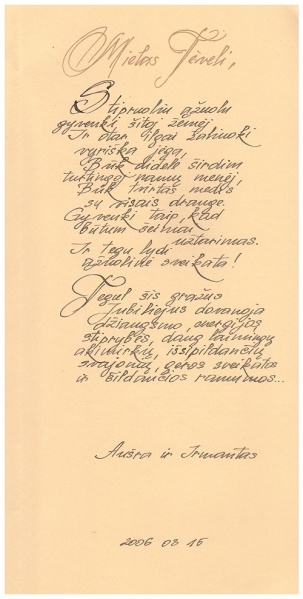 Mielas Tėveli,
Stipruoliu ąžuolu
gyvenki šitoj žemėj
Ir dar ilgai žaliuoki
vyriška jėga,
Būk didelė širdim
turtingoj namų menėj
Būk tvirtas medis
su visais drauge.
Gyvenki taip, kad
būtum šeimai
užtarimas.
Ir tegu lydi
ąžuolinė sveikata!
Tegul šis gražus
Jubiliejus dovanoja
džiaugsmo, energijos,
stiprybės, daug laimingų
akimirkų, išsipildančių
svajonių, geros sveikatos
ir šildančios ramumos...
Aušra ir Irmantas
2006 03 15